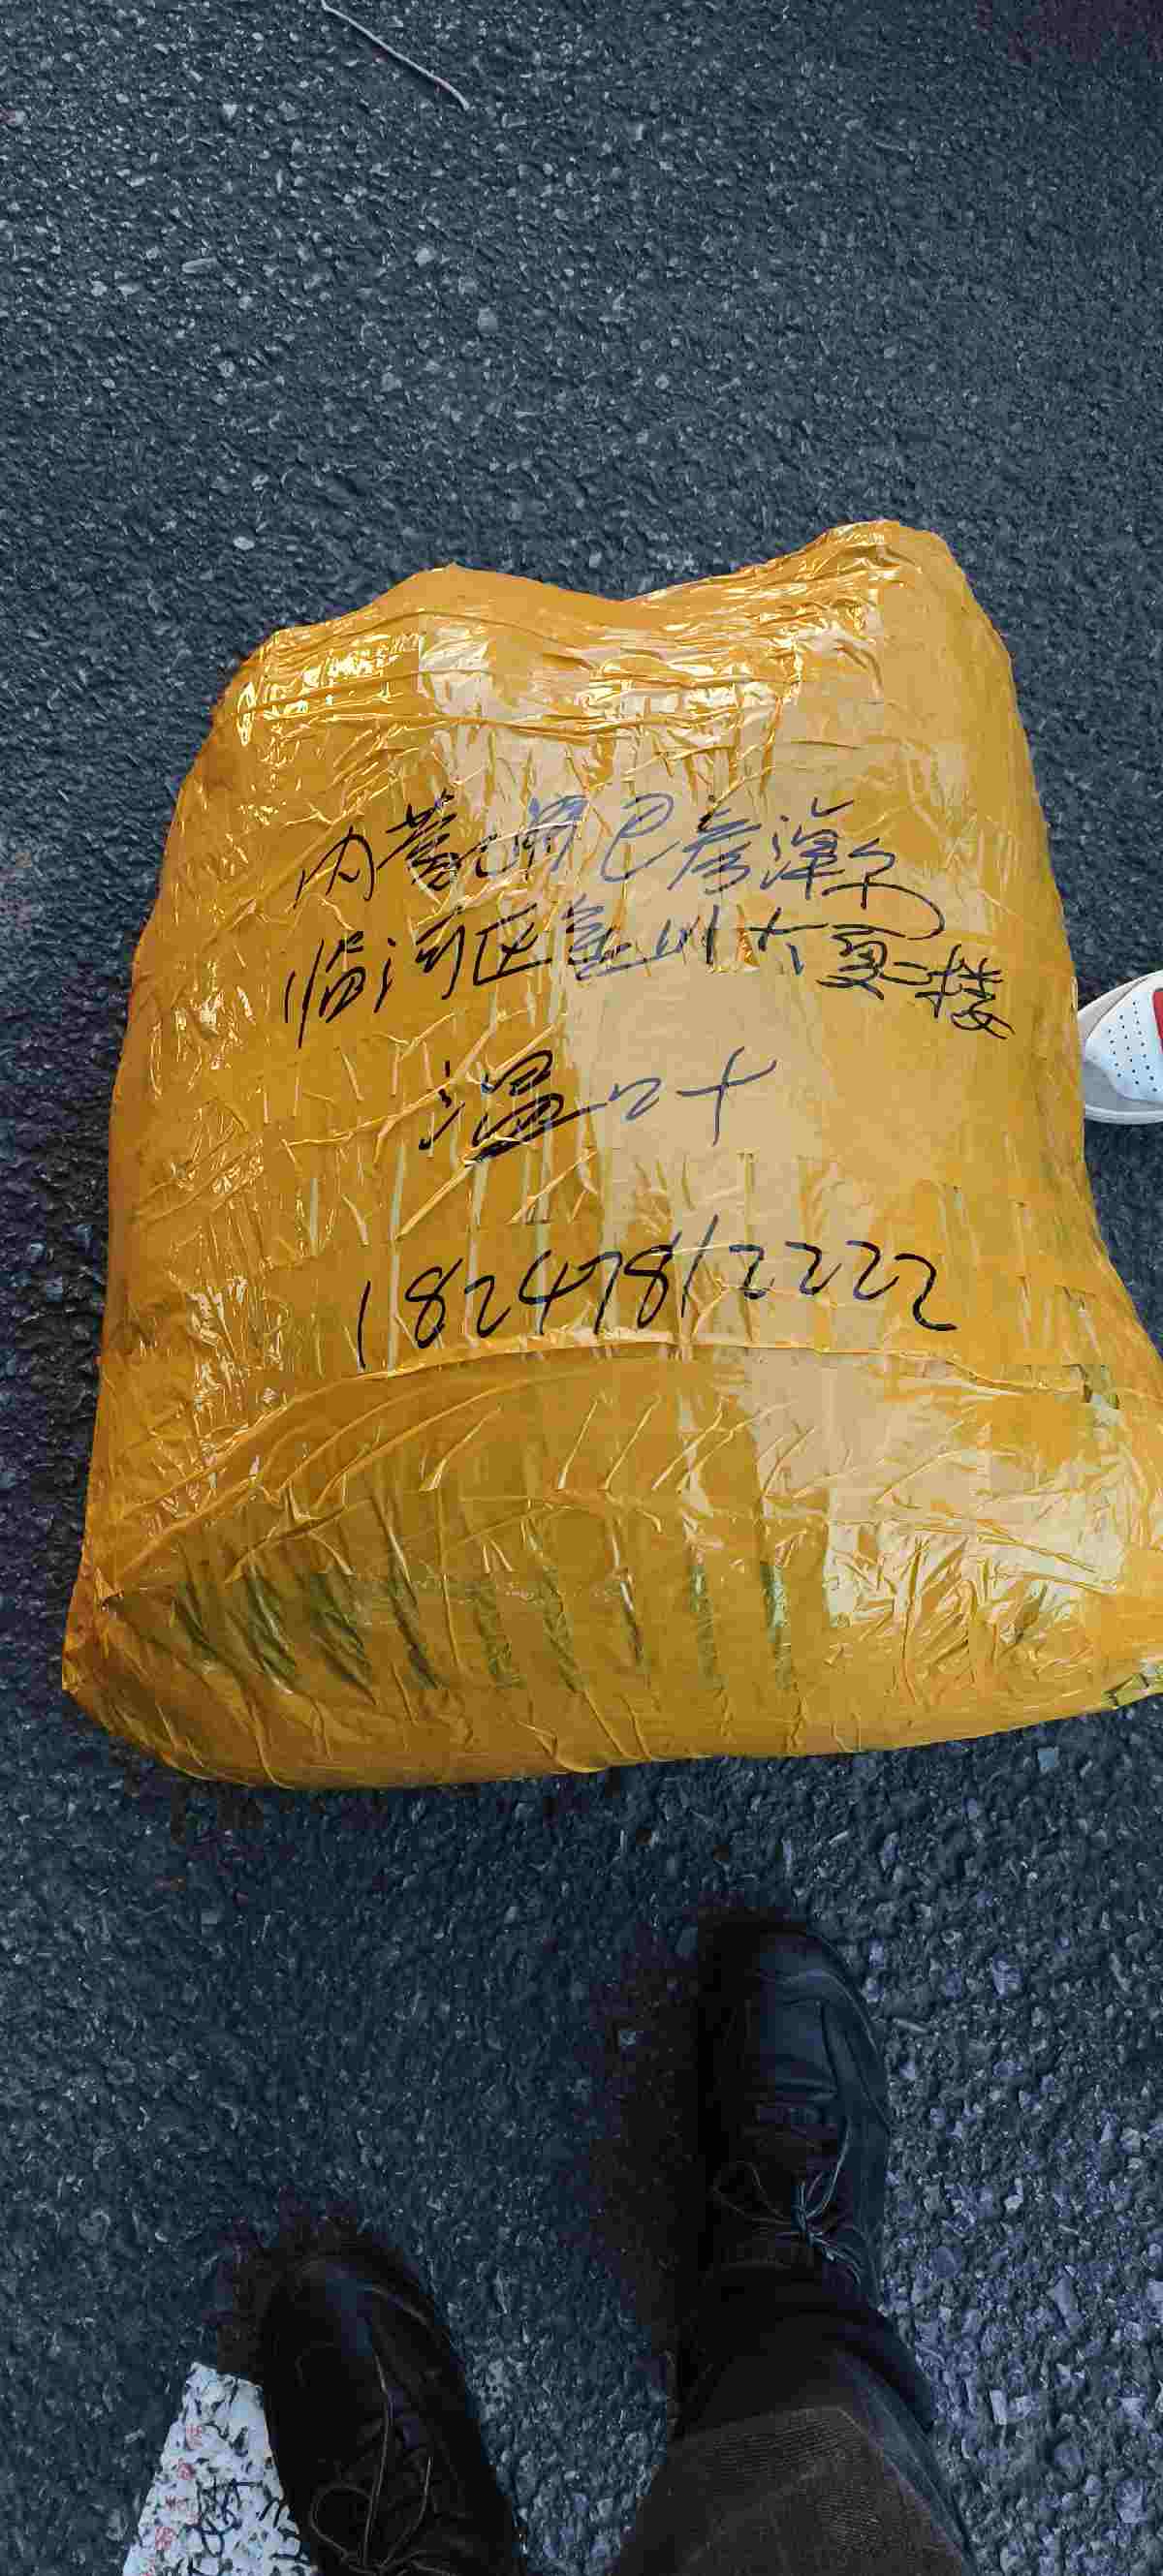 内蒙 巴彦淖尔
临河区金川大厦二楼
温叶
18247812222